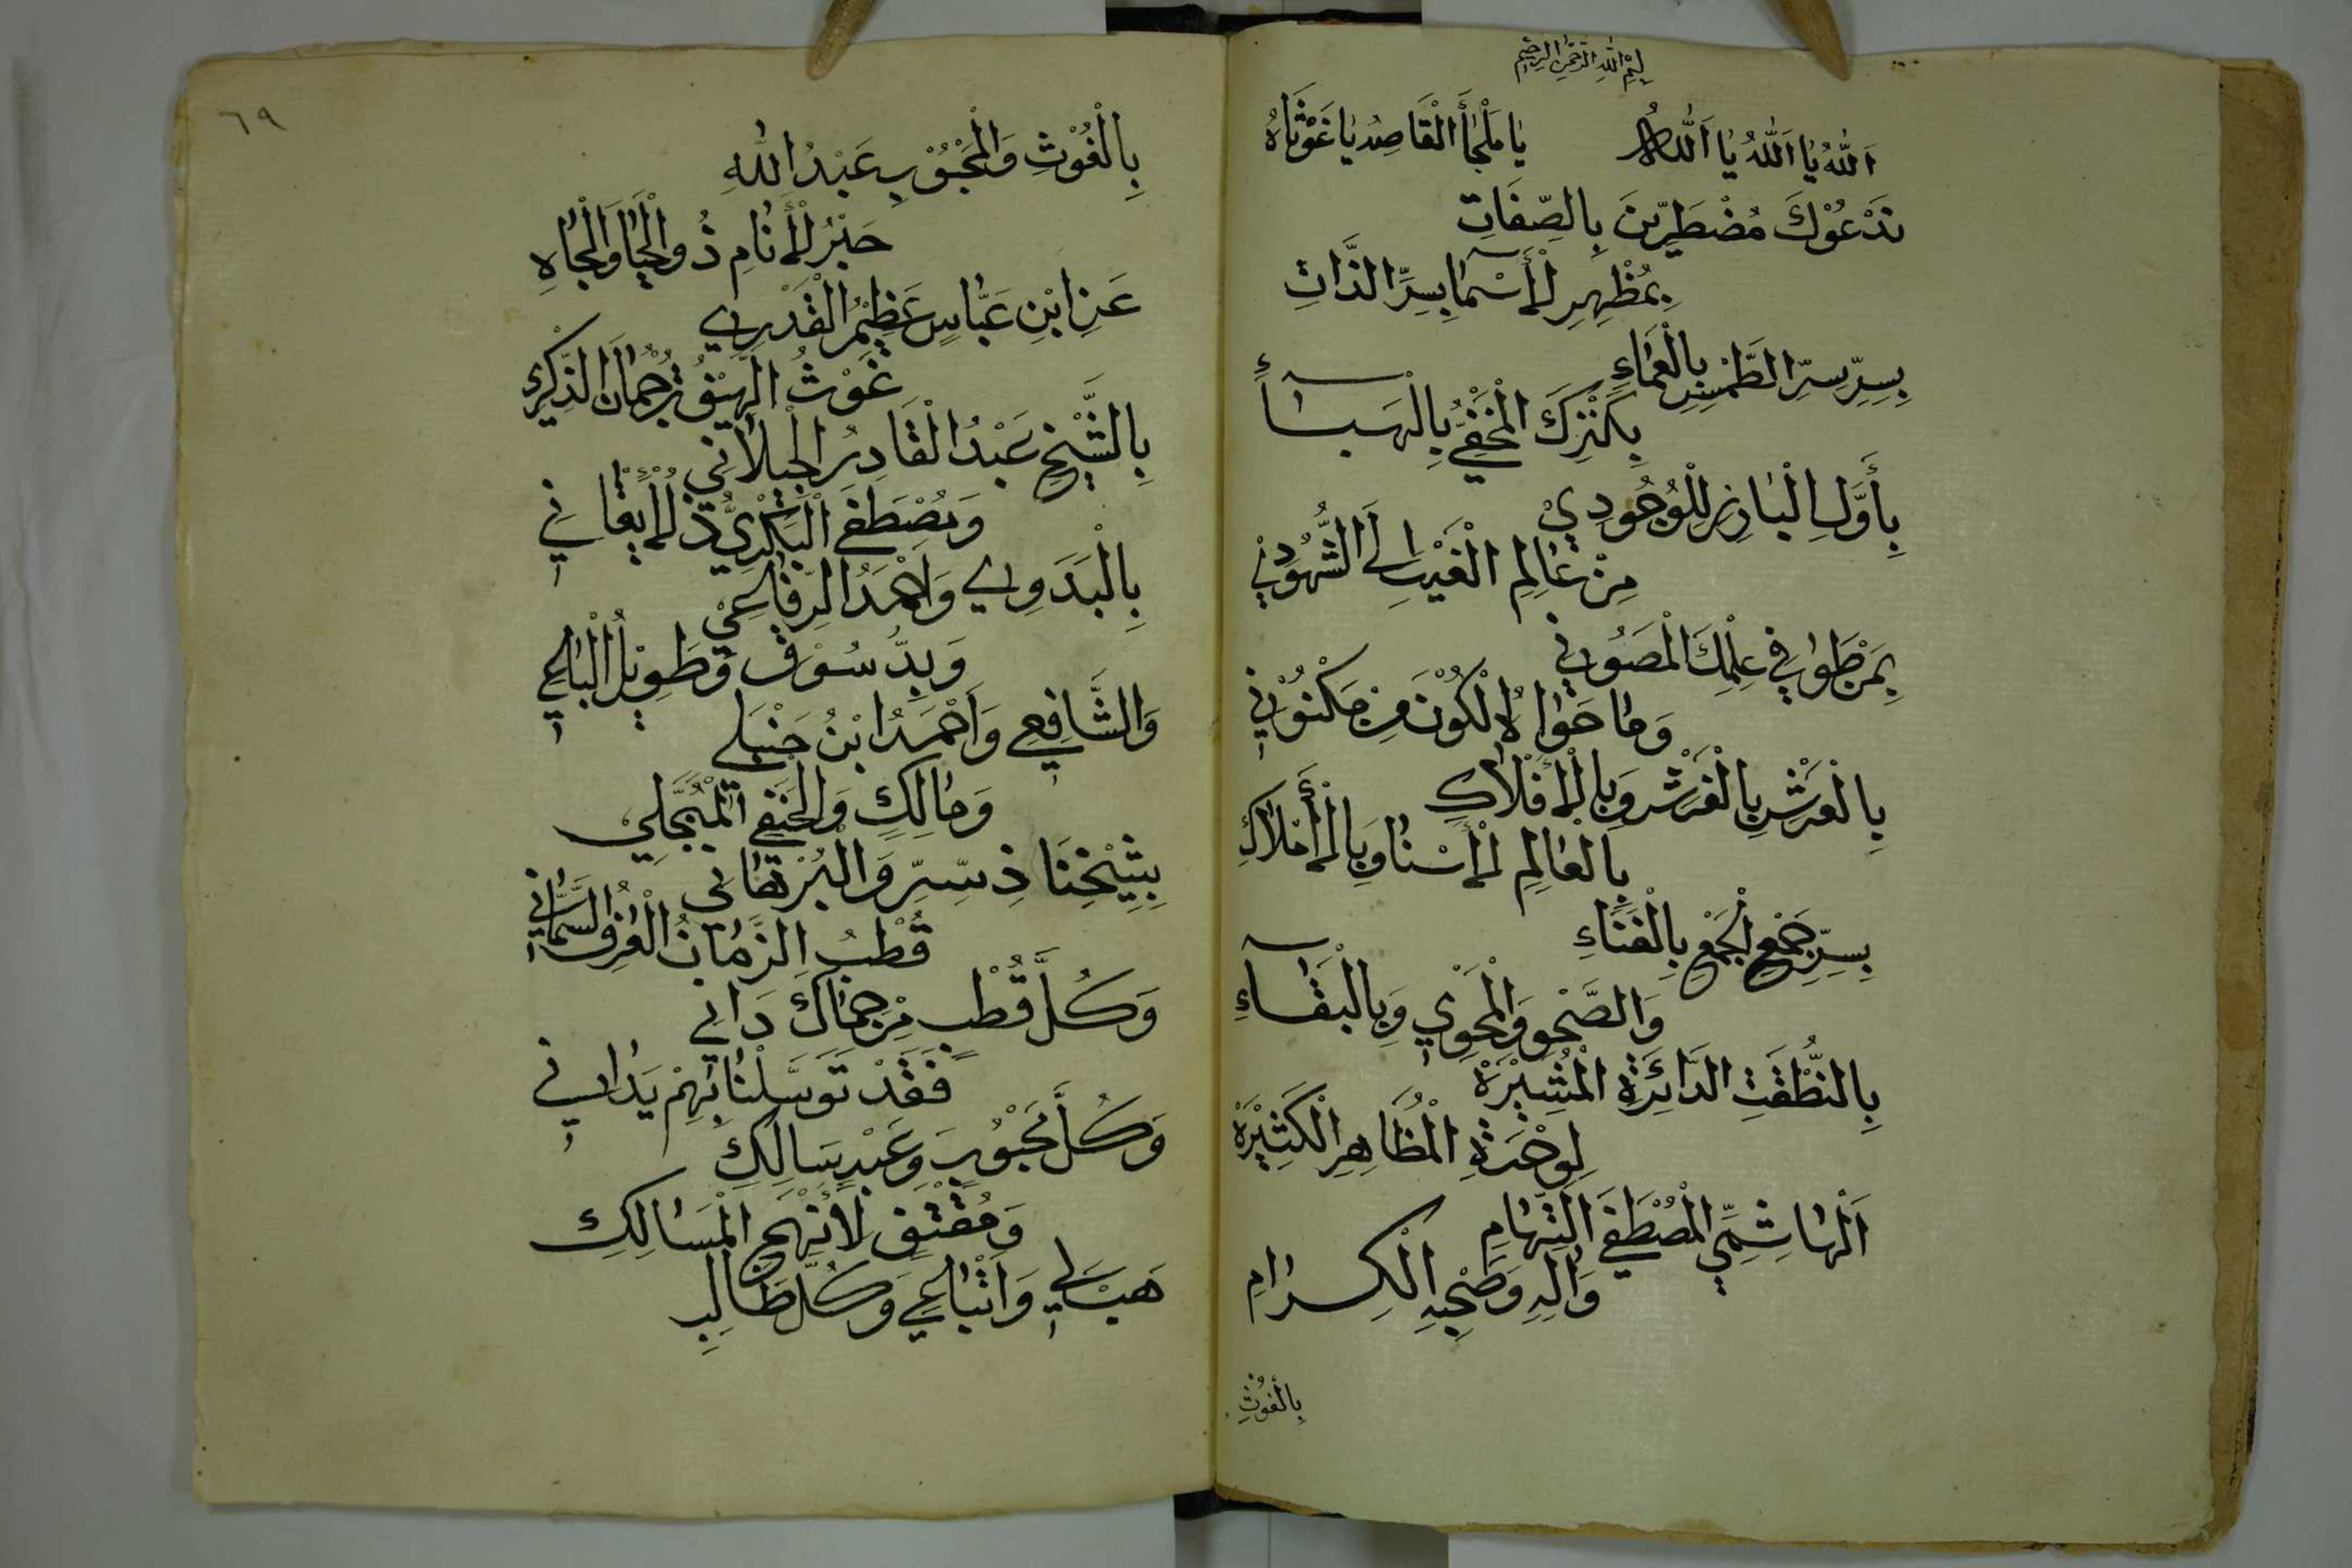 بِسْمِ اللهِ الرَّحْمٰنِ الرَّحِيْمِ
اَللهُ يَا اَللهُ يَا اَللهُ يَا مَلْجَأَ الْقَاصِدِ يَا غَوْثَاهُ
نَدْعُوْكَ مُضْطَرِّيْنَ بِالصِّفَاتِ
بِمُظْهِرِ لْأَسْمَا بِسِرِّ الذَّاتِ
بِسِرِّ سِرِّ الطَّمْسِ بِالْعَمَاءِ
بِكَنْزِكَ الْمَخْفِيِّ بِالْهَبَاءِ
بِأَوَّلِ الْبَارِزِ لِلْوُجُودِيْ
مِنْ عَالِمِ الْغَيْبِ اِلَى الشُّهُوْدِيْ
بِمَنْ طَوَا فِي عِلْمِكَ الْمَصُوْنِي
وَمَا حَوَاهُ الْكَوْنُ مِنْ مَكْنُوْنِي
بِالْعَرْشِ بِالْفَرْشِ وَبِالْأَفْلَاكِ
بِالْعَالِمِ لْأَسْنَا وَبِالْأَمْلَاكِ
بِسِرِّ جَمْعِ لْجَمْعِ بِالْفَنَاءِ
وَالصَّحْوِ وَالْمَحْوِي وَبِالْبَقَاءِ
بِالنُّطْقَتِ الدَّائِرَةِ الْمُشِيْرَةْ
لِوَحْدَةِ الْمَظَاهِرِ الْكَثِيْرَةْ
اَلْهَاشِمِيِّ الْمُصْطَفَى التِّهَامِ
وَآلِهِ وَصَحْبِهِ الْكِرَامِ
بِالْغَوْثِ
٦٩
بِالْغَوْثِ وَالْمَحْبُوْبِ عَبْدُ اللهِ
حَبْرُ لْأَنَامِ ذُو الْحَيَا وَالْجَاهِ
عَنِ ابْنِ عَبَّاسٍ عَظِيْمُ الْقَدْرِي
غَوْثُ اللَّهِيْفِ تُرْجُمَانُ الذِّكْرِ
بِالشَّيْخِ عَبْدُ الْقَادِرُ الْجِيْلَانِي
وَمُصْطَفَى الْبَكْرِيُّ ذُ لْإِيْقَانِي
بِالْبَدَوِي وَاَحْمَدُ الرِّفَاعِيْ
وَبِدُّسُوْقِي وَطَوِيْلُ الْبَاعِي
وَالشَّافِعِي وَاَحْمَدُ ابْنُ حَنْبَلِي
وَمَالِكٍ وَالْحَنَفِي الْمُبَجَّلِيْ
بِشَيْخِنَا ذِ سِّرِّ وَالْبُرْهَانِي
قُطْبُ الزَّمَانُ الْعُرِفُ السَّمَّانِي
وَكُلَّ قُطْبٍ مِنْ حِمَاكَ دَانِي
فَقَدْ تَوَسَّلْنَا بِهِمْ يَدَانِي
وَكُلَّ مَحْبُوْبٍ وَعَبْدٍ سَالِكِ
وَمُقْتَفٍ لَأَنْهَجِ الْمَسَالِكِ
هَبْ لِي وَاَتْبَاعِي وَكُلِّ طَالِبِ